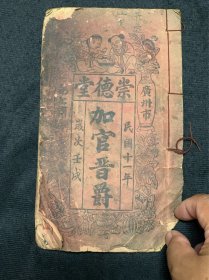 崇德堂
廣州市
民國十一年
加官晋爵
歲次壬戌